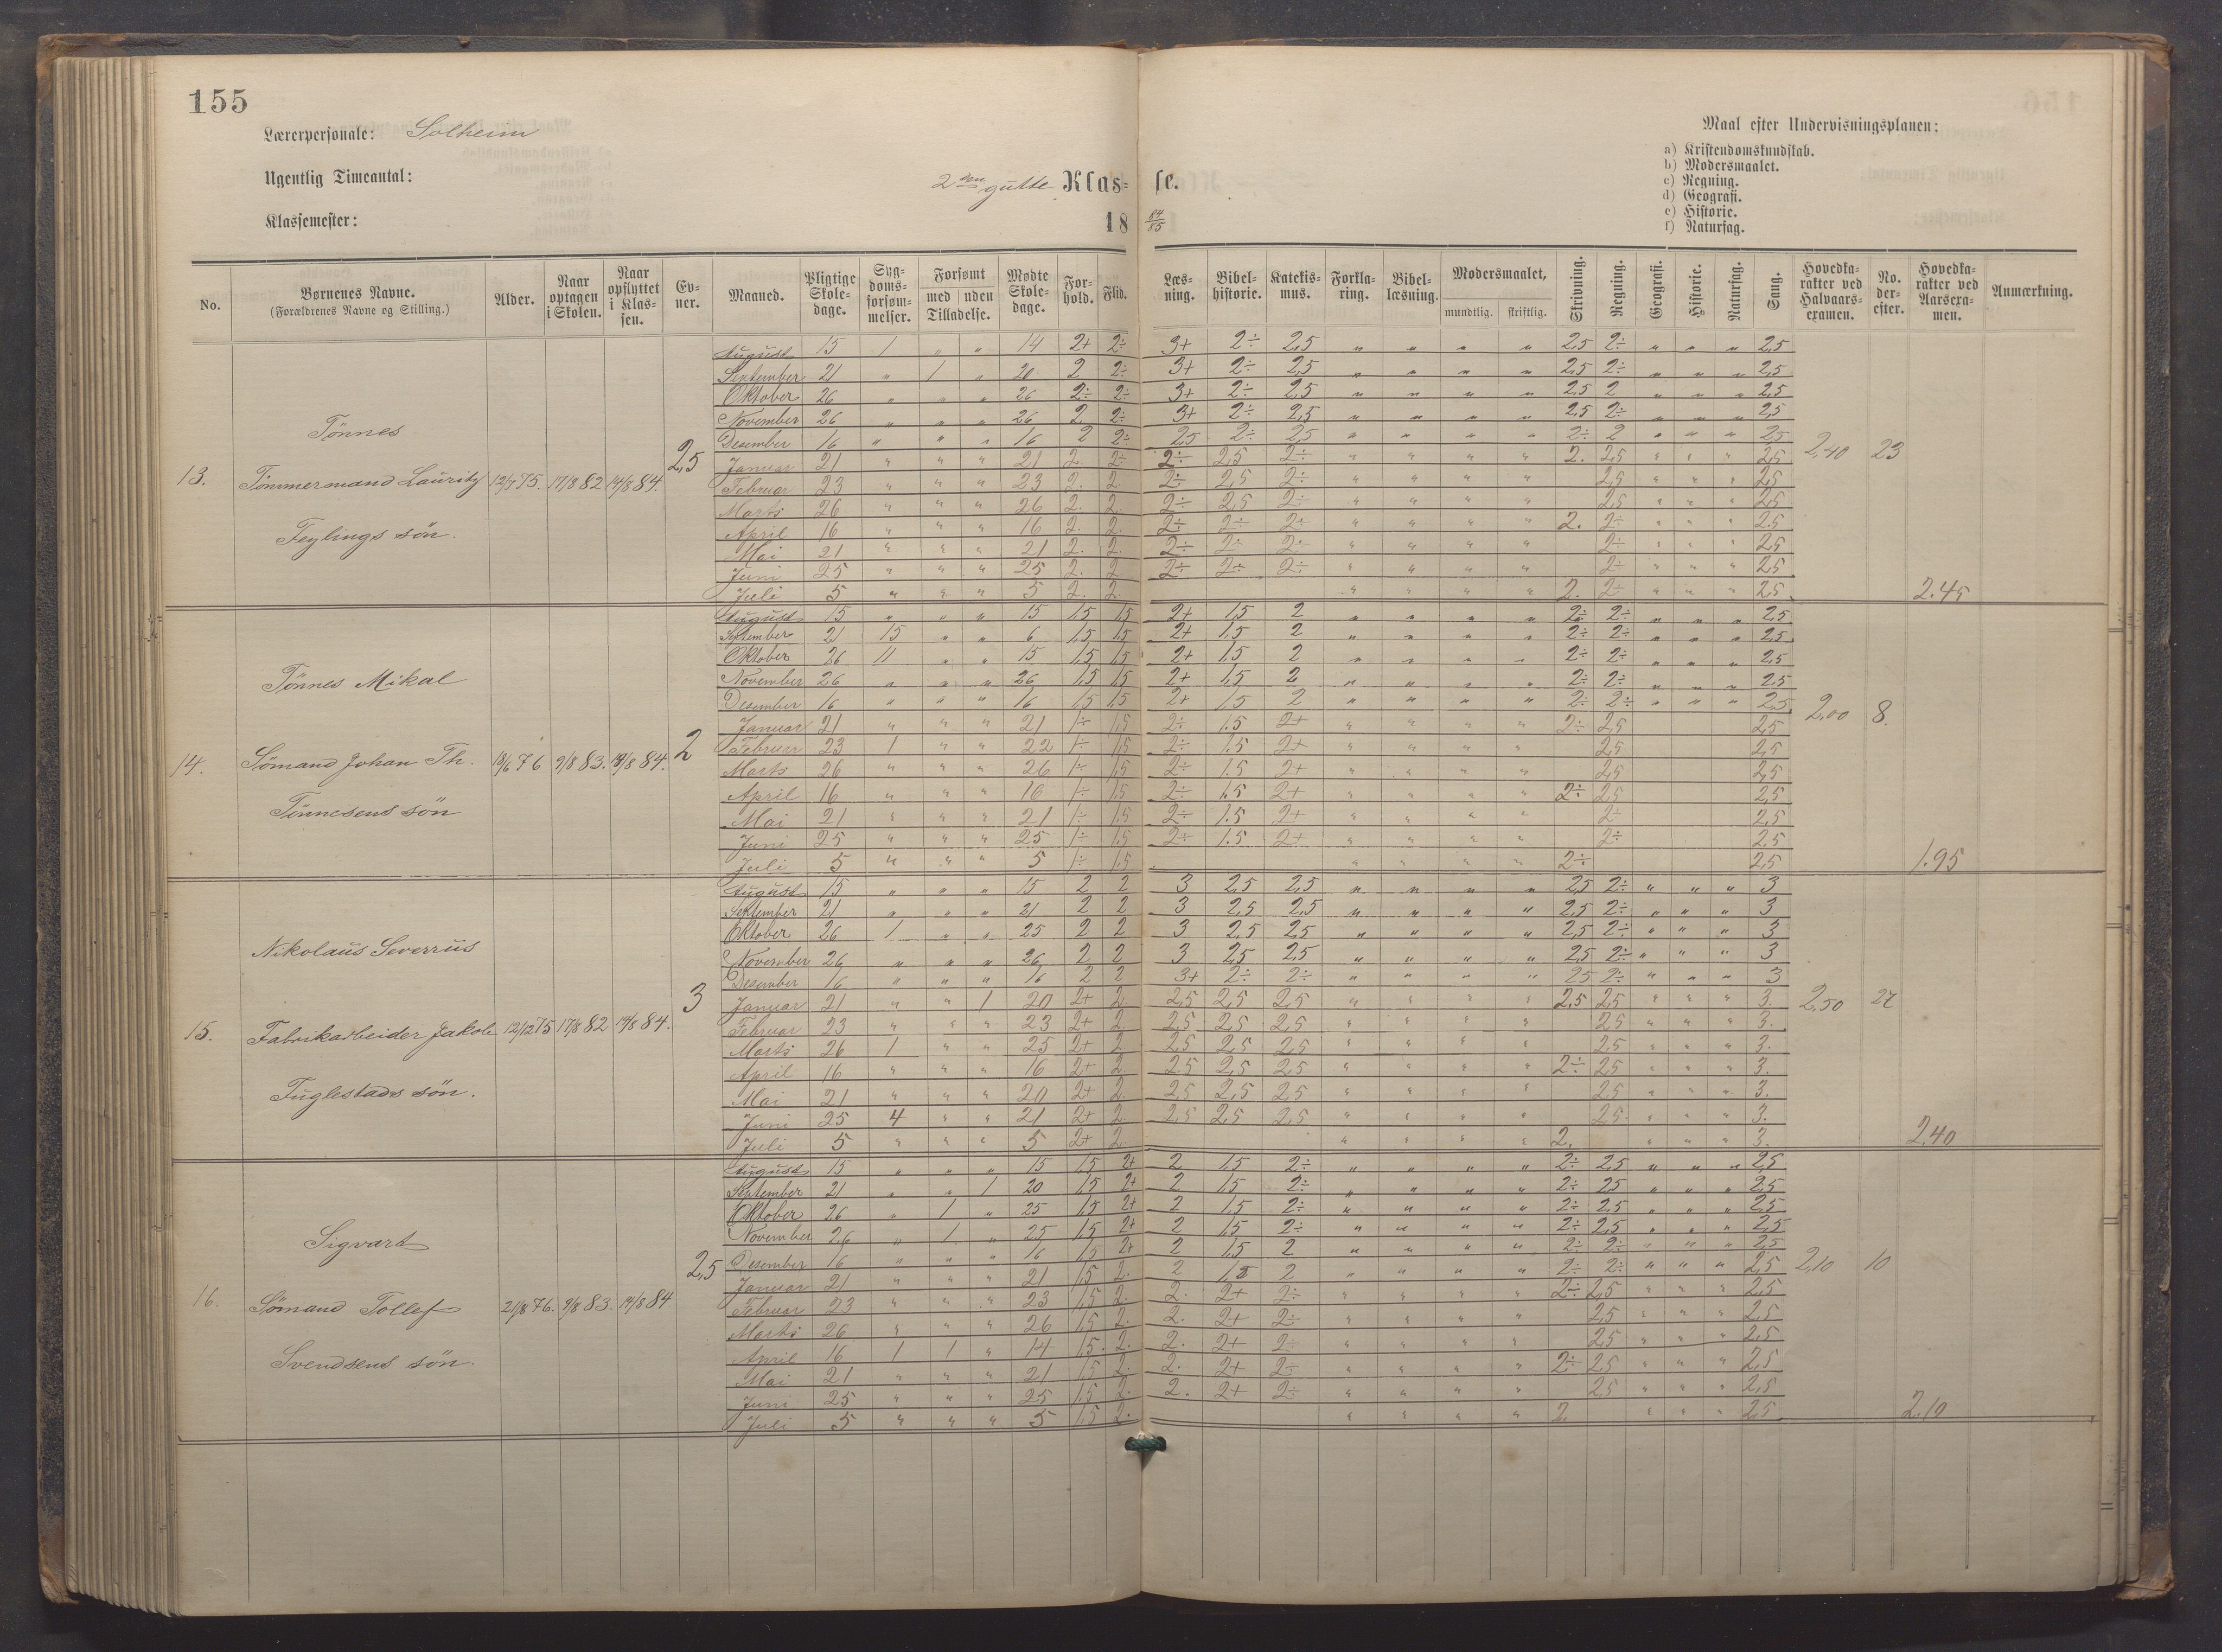 155
Lærerpersonale: Solheim
Ugentlig Timeantal:
Klassemester:
2den gutte Klas- se.
18 84/85
Maal efter Undervisningsplanen:
a) Kristendomskundskab.
b) Modersmaalet.
c) Regning.
d) Geografi.
e) Historie.
f) Naturfag.
No. Børnenes Navne. (Forældrenes Navne og Stilling.) Alder. Naar optagen i Skolen. Naar opflyttet i Klassen. Evner. Maaned. Pligtige Skoledage. Sygdomsforsømmelser. Forsømt med uden Tilladelse. Mødte Skoledage. Forhold. Flid. Læsning. Bibelhistorie. Katekismus. Forklaring. Bibellæsning. Modersmaalet, mundtlig. skriftlig. Skrivning. Regning. Geografi. Historie. Naturfag. Sang. Hovedkarakter ved Halvaarsexamen. No. derefter. Hovedkarakter ved Aarsexamen. Anmærkning.
13. Tönnes
Tömmermand Lauritz
Feylings sön.
12/3 75. 17/8 82 14/8 84. 2,5
August 15 1 „ „ 14 2+ 2÷ 3+ 2÷ 2,5 „ „ „ „ 2,5 2÷ „ „ „ 2,5
September 21 „ 1 „ 20 2 2÷ 3+ 2÷ 2,5 „ „ „ „ 2,5 2÷ „ „ „ 2,5
Oktober 26 „ „ „ 26 2÷ 2÷ 3+ 2÷ 2,5 „ „ „ „ 2,5 2 „ „ „ 2,5
November 26 „ „ „ 26 2 2÷ 3+ 2÷ 2,5 „ „ „ „ 2,5 2÷ „ „ „ 2,5
Desember 16 „ „ „ 16 2 2÷ 2,5 2÷ 2,5 „ „ „ „ 2÷ 2 „ „ „ 2,5
Januar 21 „ „ „ 21 2. 2÷ 2÷ 2,5 2÷ „ „ „ „ 2. 2,5 „ „ „ 2,5 2,40 23
Februar 23 „ „ „ 23 2. 2. 2÷ 2,5 2÷ „ „ „ „ 2,5 „ „ „ 2,5
Marts 26 „ „ „ 26 2. 2. 2÷ 2,5 2÷ „ „ „ „ 2,5 „ „ „ 2,5
April 16 „ „ „ 16 2. 2. 2÷ 2÷ 2÷ „ „ „ „ 2. 2÷ „ „ „ 2.5
Mai 21 „ „ „ 21 2. 2. 2÷ 2÷ 2÷ „ „ „ „ 2÷ „ „ „ 2,5
Juni 25 „ „ „ 25 2. 2 2÷ 2÷ 2÷ „ „ „ „ 2÷ „ „ „ 2,5
Juli 5 „ „ „ 5 2. 2. „ „ „ „ 2. 2÷ „ „ „ 2,5 2.45
14. Tönnes Mikal
Sömand Johan Th.
Tönnesens sön
18/6 76 9/8 83. 14/8 84. 2
August 15 „ „ „ 15 1,5 1,5 2+ 1,5 2 „ „ „ „ 2÷ 2÷ „ „ „ 2,5
September 21 15 „ „ 6 1,5 1,5 2+ 1,5 2 „ „ „ „ 2÷ 2÷ „ „ „ 2,5
Oktober 26 11 „ „ 15 1,5 1,5 2+ 1,5 2 „ „ „ „ 2÷ 2÷ „ „ „ 2,5
November 26 „ „ „ 26 1,5 1,5 2+ 1,5 2 „ „ „ „ 2÷ 2÷ „ „ „ 2,5
Desember 16 „ „ „ 16 1,5 1,5 2+ 1,5 2 „ „ „ „ 2÷ 2÷ „ „ „ 2,5
Januar 21 „ „ „ 21 1÷ 1,5 2÷ 1.5 2+ „ „ „ „ 2÷ 2,5 2,5 2,00 8.
Februar 23 1 „ „ 22 1÷ 1,5 2÷ 1.5 2+ „ „ „ „ 2,5 2,5
Marts 26 „ „ „ 26 1÷ 1,5 2÷ 1.5 2+ „ „ „ „ 2,5 2,5
April 16 „ „ „ 16 1÷ 1,5 2÷ 1.5 2+ „ „ „ „ 2÷ 2,5 2,5
Mai 21 „ „ „ 21 1÷ 1.5 2÷ 1.5 2+ „ „ „ „ 2÷ 2,5
Juni 25 „ „ „ 25 1÷ 1,5 2÷ 1.5 2+ „ „ „ „ 2÷ 2,5
Juli 5 „ „ „ 5 1÷ 1,5 „ „ „ „ 2÷ 2,5 1.95
15. Nikolaus Severrus
Fabrikarbeider Jakob
Fuglestads sön.
12/12 75 17/8 82 14/8 84. 3
August 15 „ „ „ 15 2 2 3 2,5 2,5 „ „ „ „ 2,5 2÷ „ „ „ 3
September 21 „ „ „ 21 2 2 3 2,5 2,5 „ „ „ „ 2,5 2÷ „ „ „ 3
Oktober 26 1 „ „ 25 2 2 3 2,5 2,5 „ „ „ „ 2,5 2÷ „ „ „ 3
November 26 „ „ „ 26 2 2 3 2,5 2,5 „ „ „ „ 2,5 2÷ „ „ „ 3
Desember 16 „ „ „ 16 2 2 3+ 2÷ 2÷ „ „ „ „ 2,5 2÷ „ „ „ 3
Januar 21 „ „ 1 20 2+ 2 2,5 2,5 2,5 „ „ „ „ 2,5 2,5 „ „ „ 3. 2,50 27
Februar 23 „ „ „ 23 2+ 2 2,5 2,5 2,5 „ „ „ „ 2,5 „ „ „ 3.
Marts 26 1 „ „ 25 2+ 2 2,5 2,5 2,5 „ „ „ „ 2,5 „ „ „ 3.
April 16 „ „ „ 16 2+ 2 2.5 2,5 2,5 „ „ „ „ 2÷ 2,5 „ „ „ 3.
Mai 21 „ „ „ 20 2+ 2 2,5 2,5 2,5 „ „ „ „ 2,5 „ „ „ 3.
Juni 25 4 „ „ 21 2+ 2 2,5 2,5 2,5 „ „ „ „ 2,5 „ „ „ 3.
Juli 5 „ „ „ 5 2+ 2. „ „ „ „ 2. „ „ „ 3. 2.40
16. Sigvart
Sömand Tollef
Svendsens sön.
21/8 76. 9/8 83. 14/8 84 2,5
August 15 „ „ „ 15 1,5 2+ 2 1,5 2÷ „ „ „ „ 2÷ 2,5 „ „ „ 2,5
September 21 „ „ 1 20 1,5 2+ 2 1,5 2÷ „ „ „ „ 2÷ 2,5 „ „ „ 2,5
Oktober 26 „ 1 „ 25 1,5 2+ 2 1,5 2÷ „ „ „ „ 2÷ 2,5 „ „ „ 2,5
November 26 „ 1 „ 25 1,5 2+ 2 1,5 2÷ „ „ „ „ 2÷ 2,5 „ „ „ 2,5
Desember 16 „ „ „ 16 1,5 2+ 2 1,5 2 „ „ „ „ 2÷ 2÷ „ „ „ 2,5
Januar 21 „ „ „ 21 1,5 2. 2 1,5 2 „ „ „ „ 2÷ 2÷ „ „ „ 2,5 2,10 10
Februar 23 „ „ „ 23 1,5 2. 2. 2+ 2÷ „ „ „ „ 2÷ 2,5 „ „ „ 2,5
Marts 26 „ „ „ 26 1,5 2. 2. 2+ 2÷ „ „ „ „ 2,5 „ „ „ 2,5
April 16 1 1 „ 14 1,5. 2. 2. 2+ 2÷ „ „ „ „ 2,5 „ „ „ 2,5
Mai 21 „ „ „ 21 1,5 2. 2. 2+ 2÷ „ „ „ „ 2÷ 2,5 „ „ „ 2,5
Juni 25 „ „ „ 25 1,5 2. 2. 2+ 2÷ „ „ „ „ 2,5 „ „ „ 2,5
Juli 5 „ „ „ 5 1,5 2. „ „ „ „ 2. „ „ „ 2,5 2.10